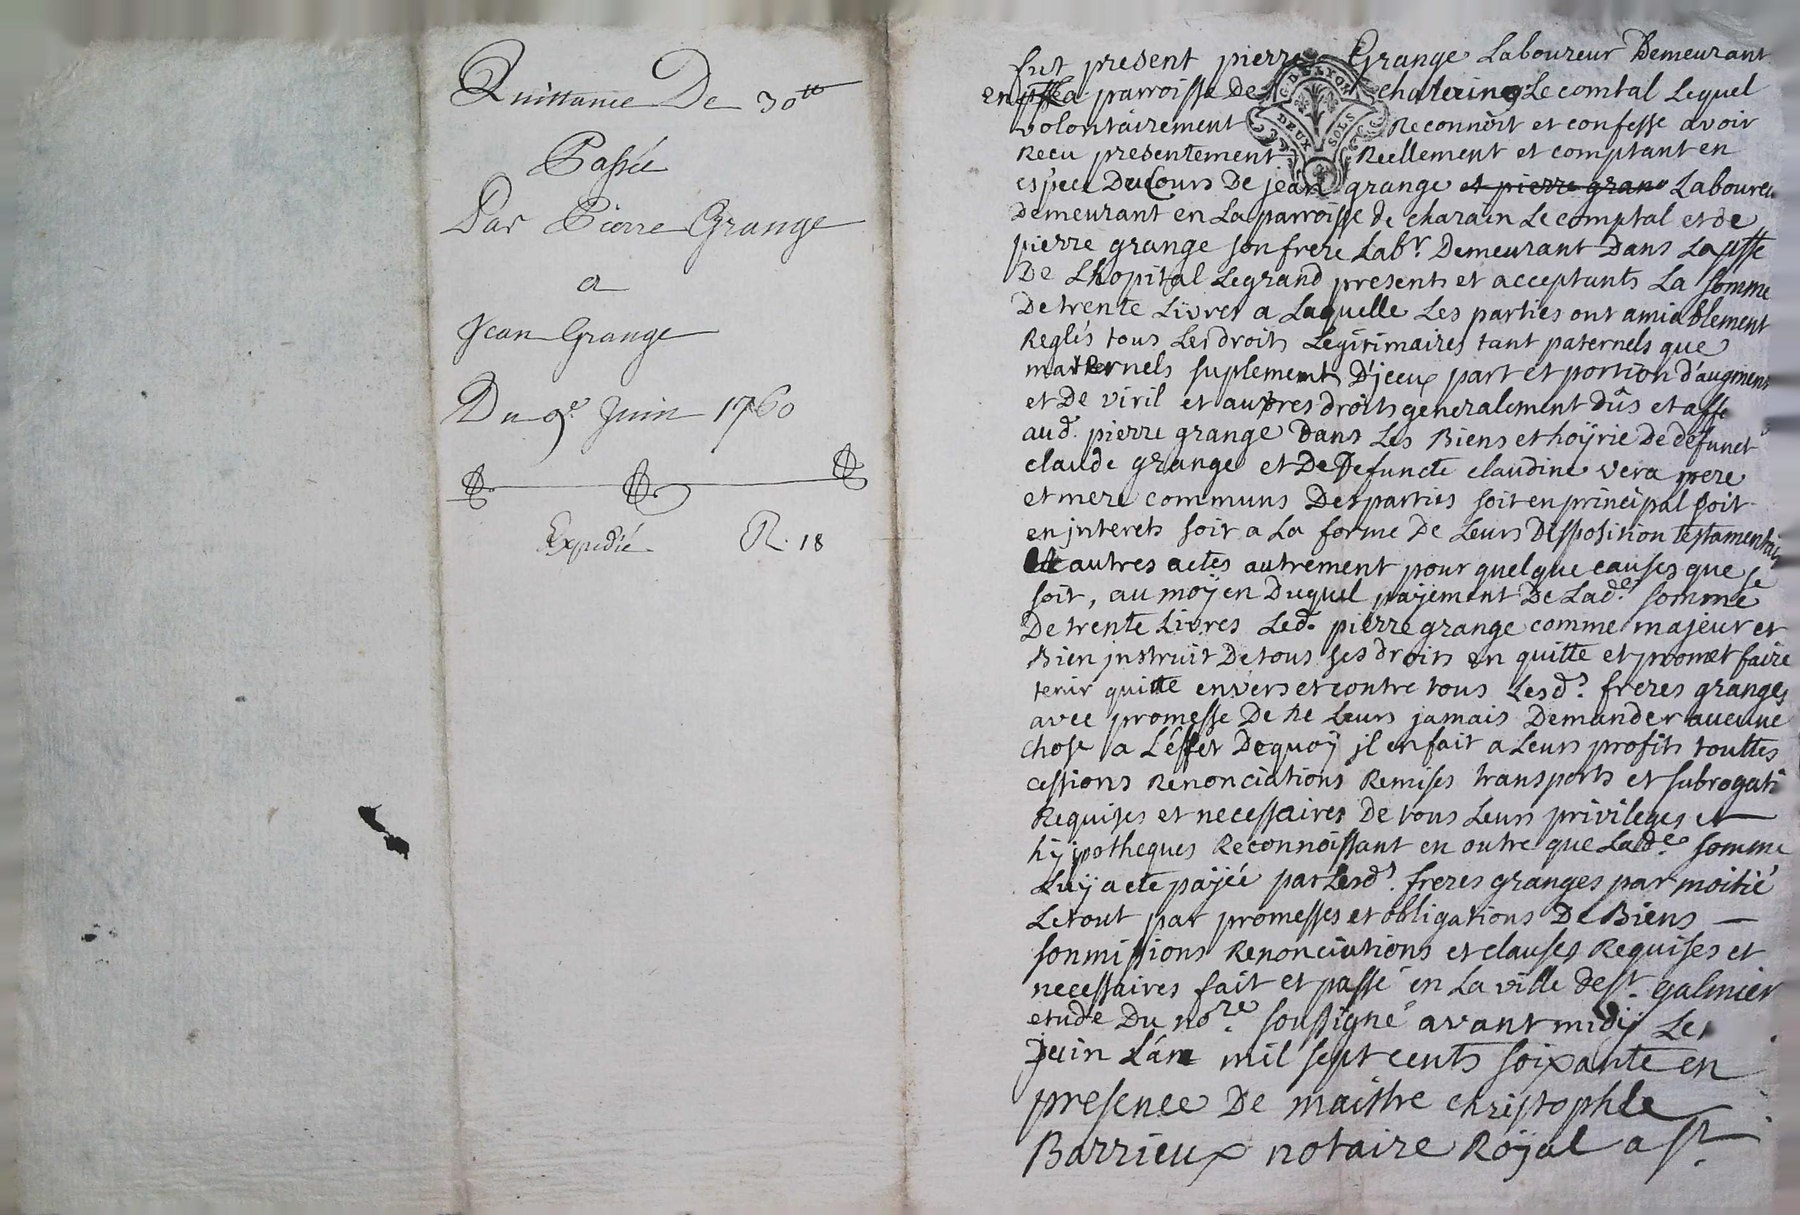 Quittance De 30tt
Passée
Par Pierre Grange
a
Jean Grange
Du 9e Juin 1760
Expedié R. 18
fut present pierre Grange Laboureur Demeurant
en parroisse De Le comtal Lequel
volontairement Reconnoit et confesse avoir
Recu presentement Reellement et comptant en
espece Du Cours De jean grange et pierre grange Laboureu
Demeurant en La parroisse de charain Le comptal et de
pierre grange son frere Labr. Demeurant Dans La psse
De Lhopital Legrand presents et acceptants La somme
De trente Livres a Laquelle Les parties ont amiablement
Reglés tous Les droits Legitimaires tant paternels que
maternels suplement D'jceux part et portion d'augment
et De viril et autres droits generalement dûs et
aud. pierre grange Dans Les Biens et hoÿrie De defunct
claude grange et De Defuncte claudine vera pere
et mere communs Des parties soit en principal soit
en jnterets soit a La forme De Leurs Disposition testamentai
et autres actes autrement pour quelque causes que ce
soit, au moÿen Duquel paÿement De Lade. somme
De trente Livres Led. pierre grange comme majeur et
Bien jnstruit De tous ses droits en quitte et promet faire
tenir quitte envers et contre tous Lesds. freres granges
avec promesse De ne Leurs jamais Demander aucune
chose a L'effet Dequoÿ jl en fait a Leurs profits touttes
cessions Renonciations Remises transports et subrogati
Requises et necessaires De tous Leurs privileges et
hÿpotheques Reconnoissant en outre que Lade. somme
Luÿ a eté païée par Lesds. freres granges par moitié
Le tout par promesses et obligations De Biens
sonmissions Renonciations et clauses Requises et
necessaires fait et passé en La ville de st. galmier
etude Du nore. soussigné avant midÿ Le
Juin L'an mil sept cents soixante en
presence De maistre christophle
Barrieux notaire Roÿal a st.
G. DE LYON
DEUX SOLS